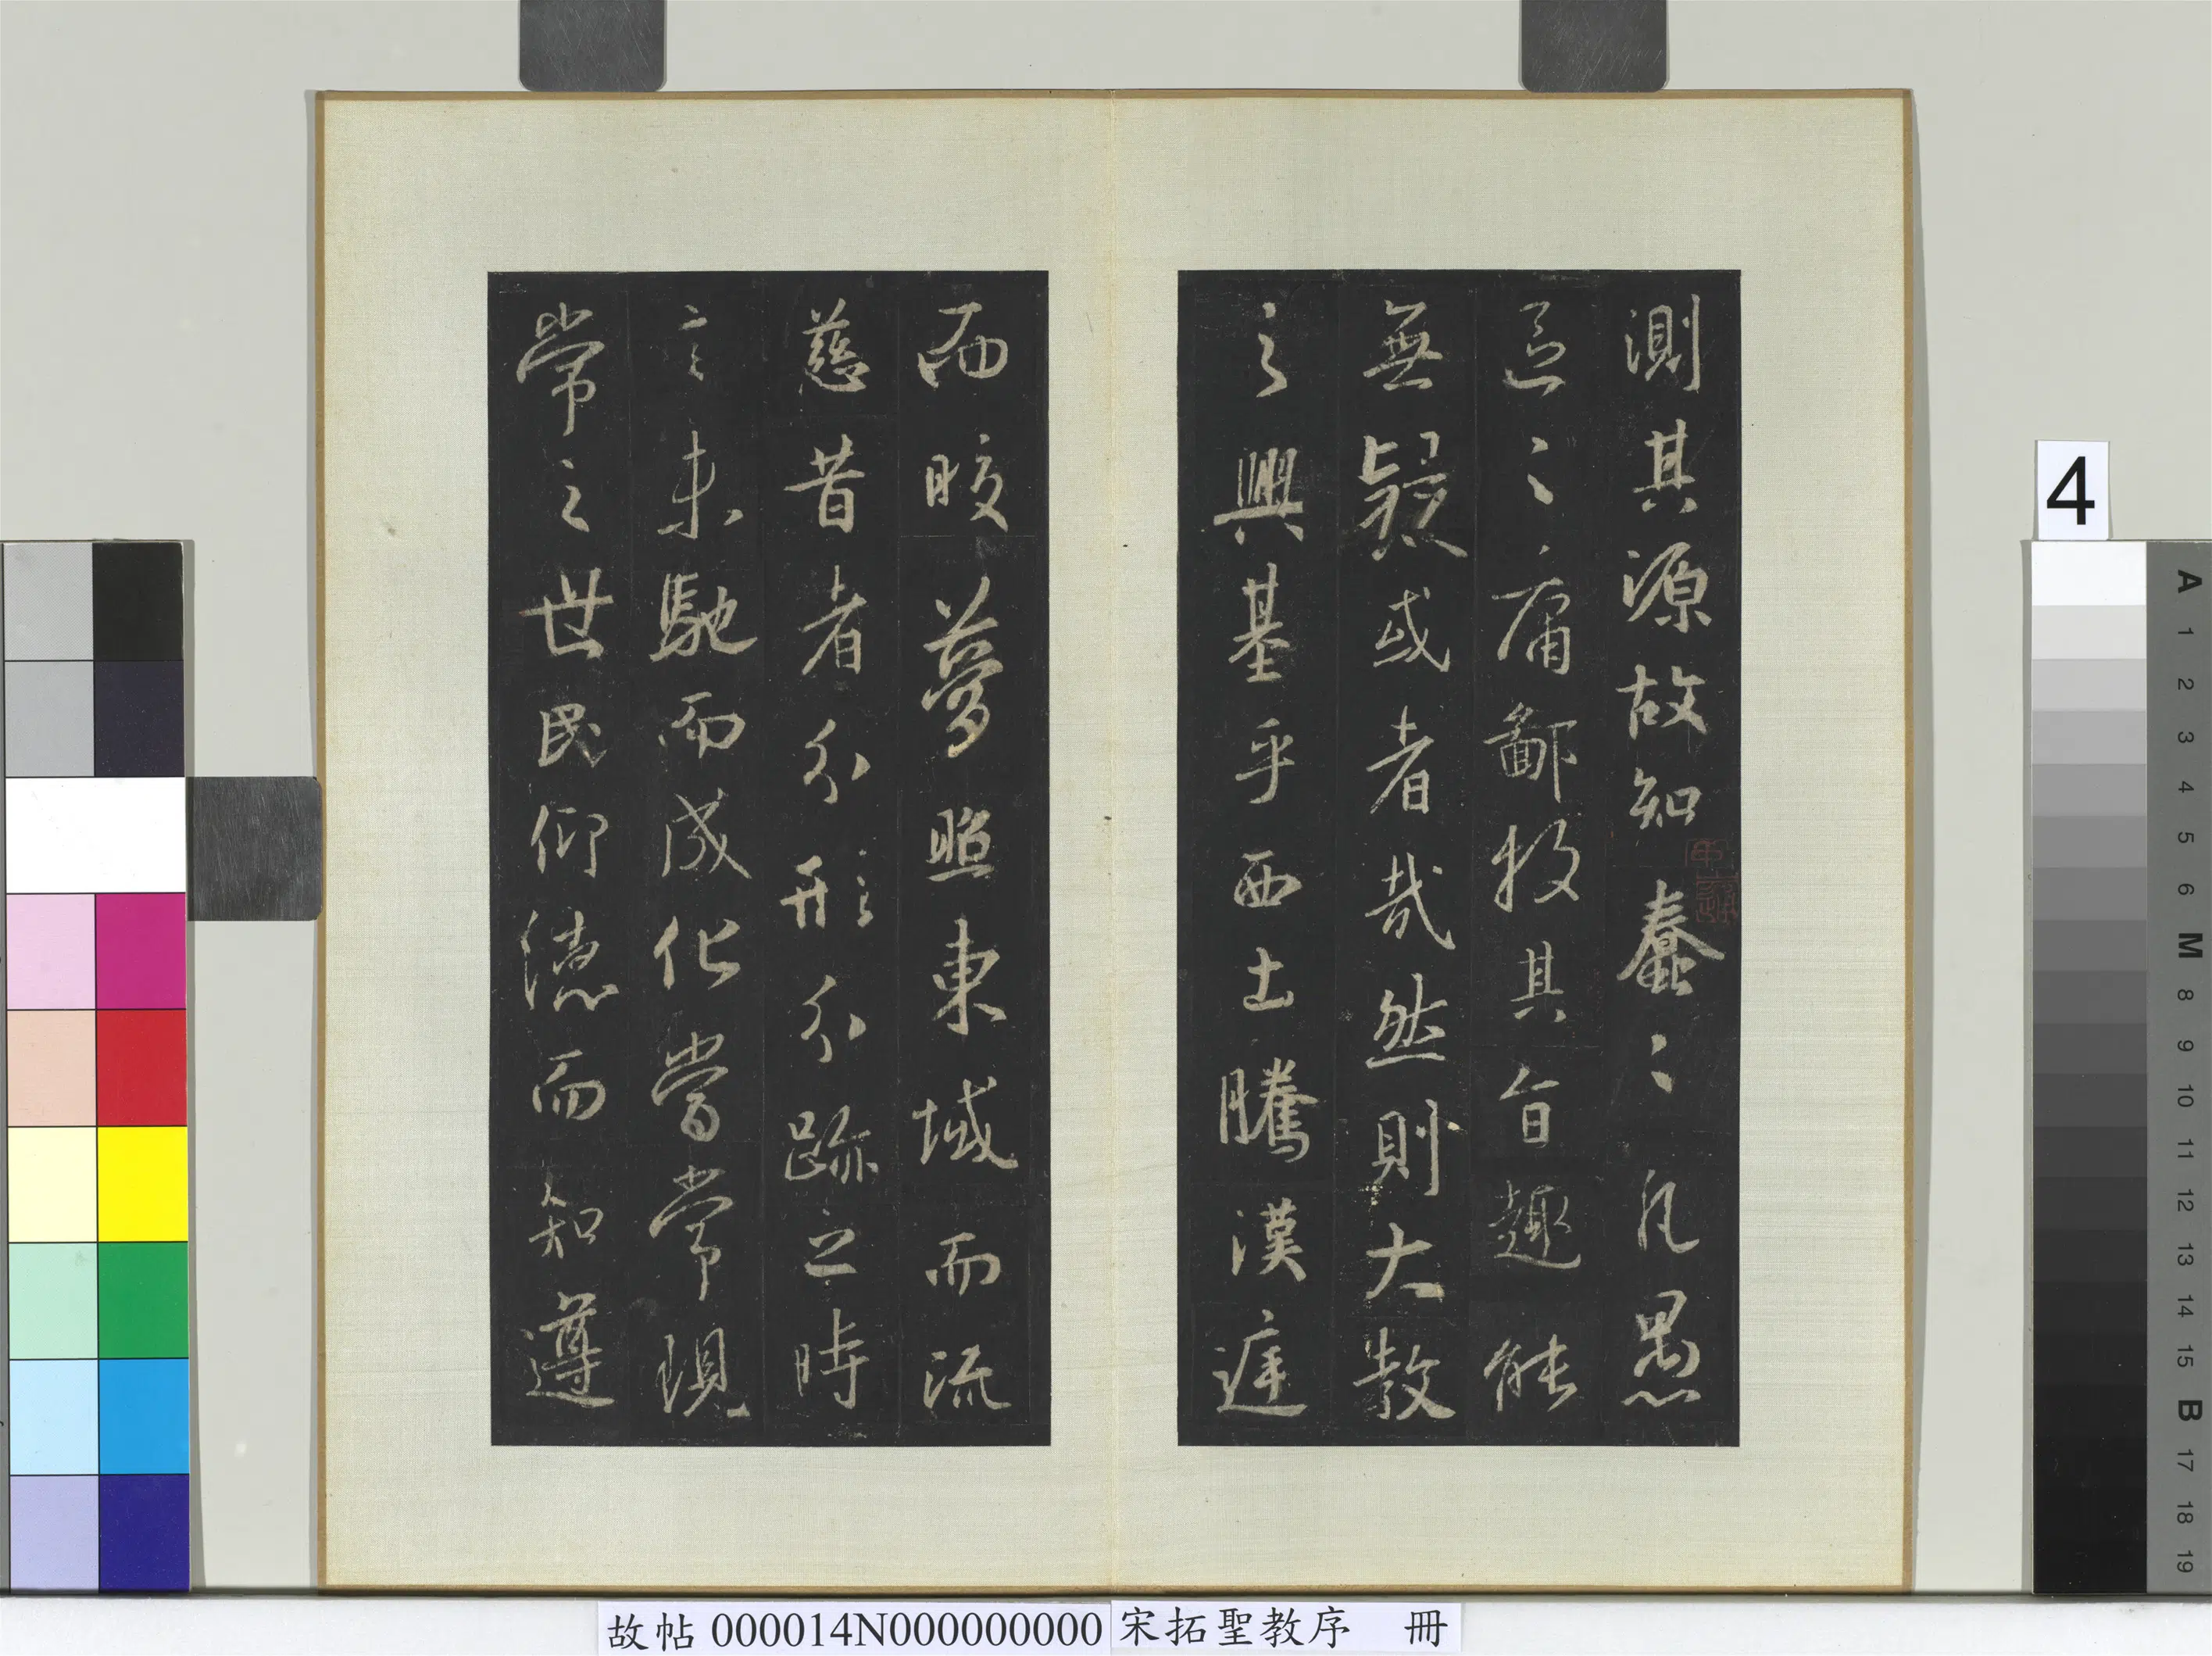 測其源故知蠢〻凡愚
區〻庸鄙投其旨趣能
無疑或者哉然則大教
之興基乎西土騰漢庭
而晈夢照東域而流
慈昔者分形分跡之時
言未馳而成化當常現
常之世民仰德而知遵
4
A
1
2
3
4
5
6
M
8
9
10
11
12
13
14
15
B
17
18
19
故帖 000014N000000000 宋拓聖教序 冊